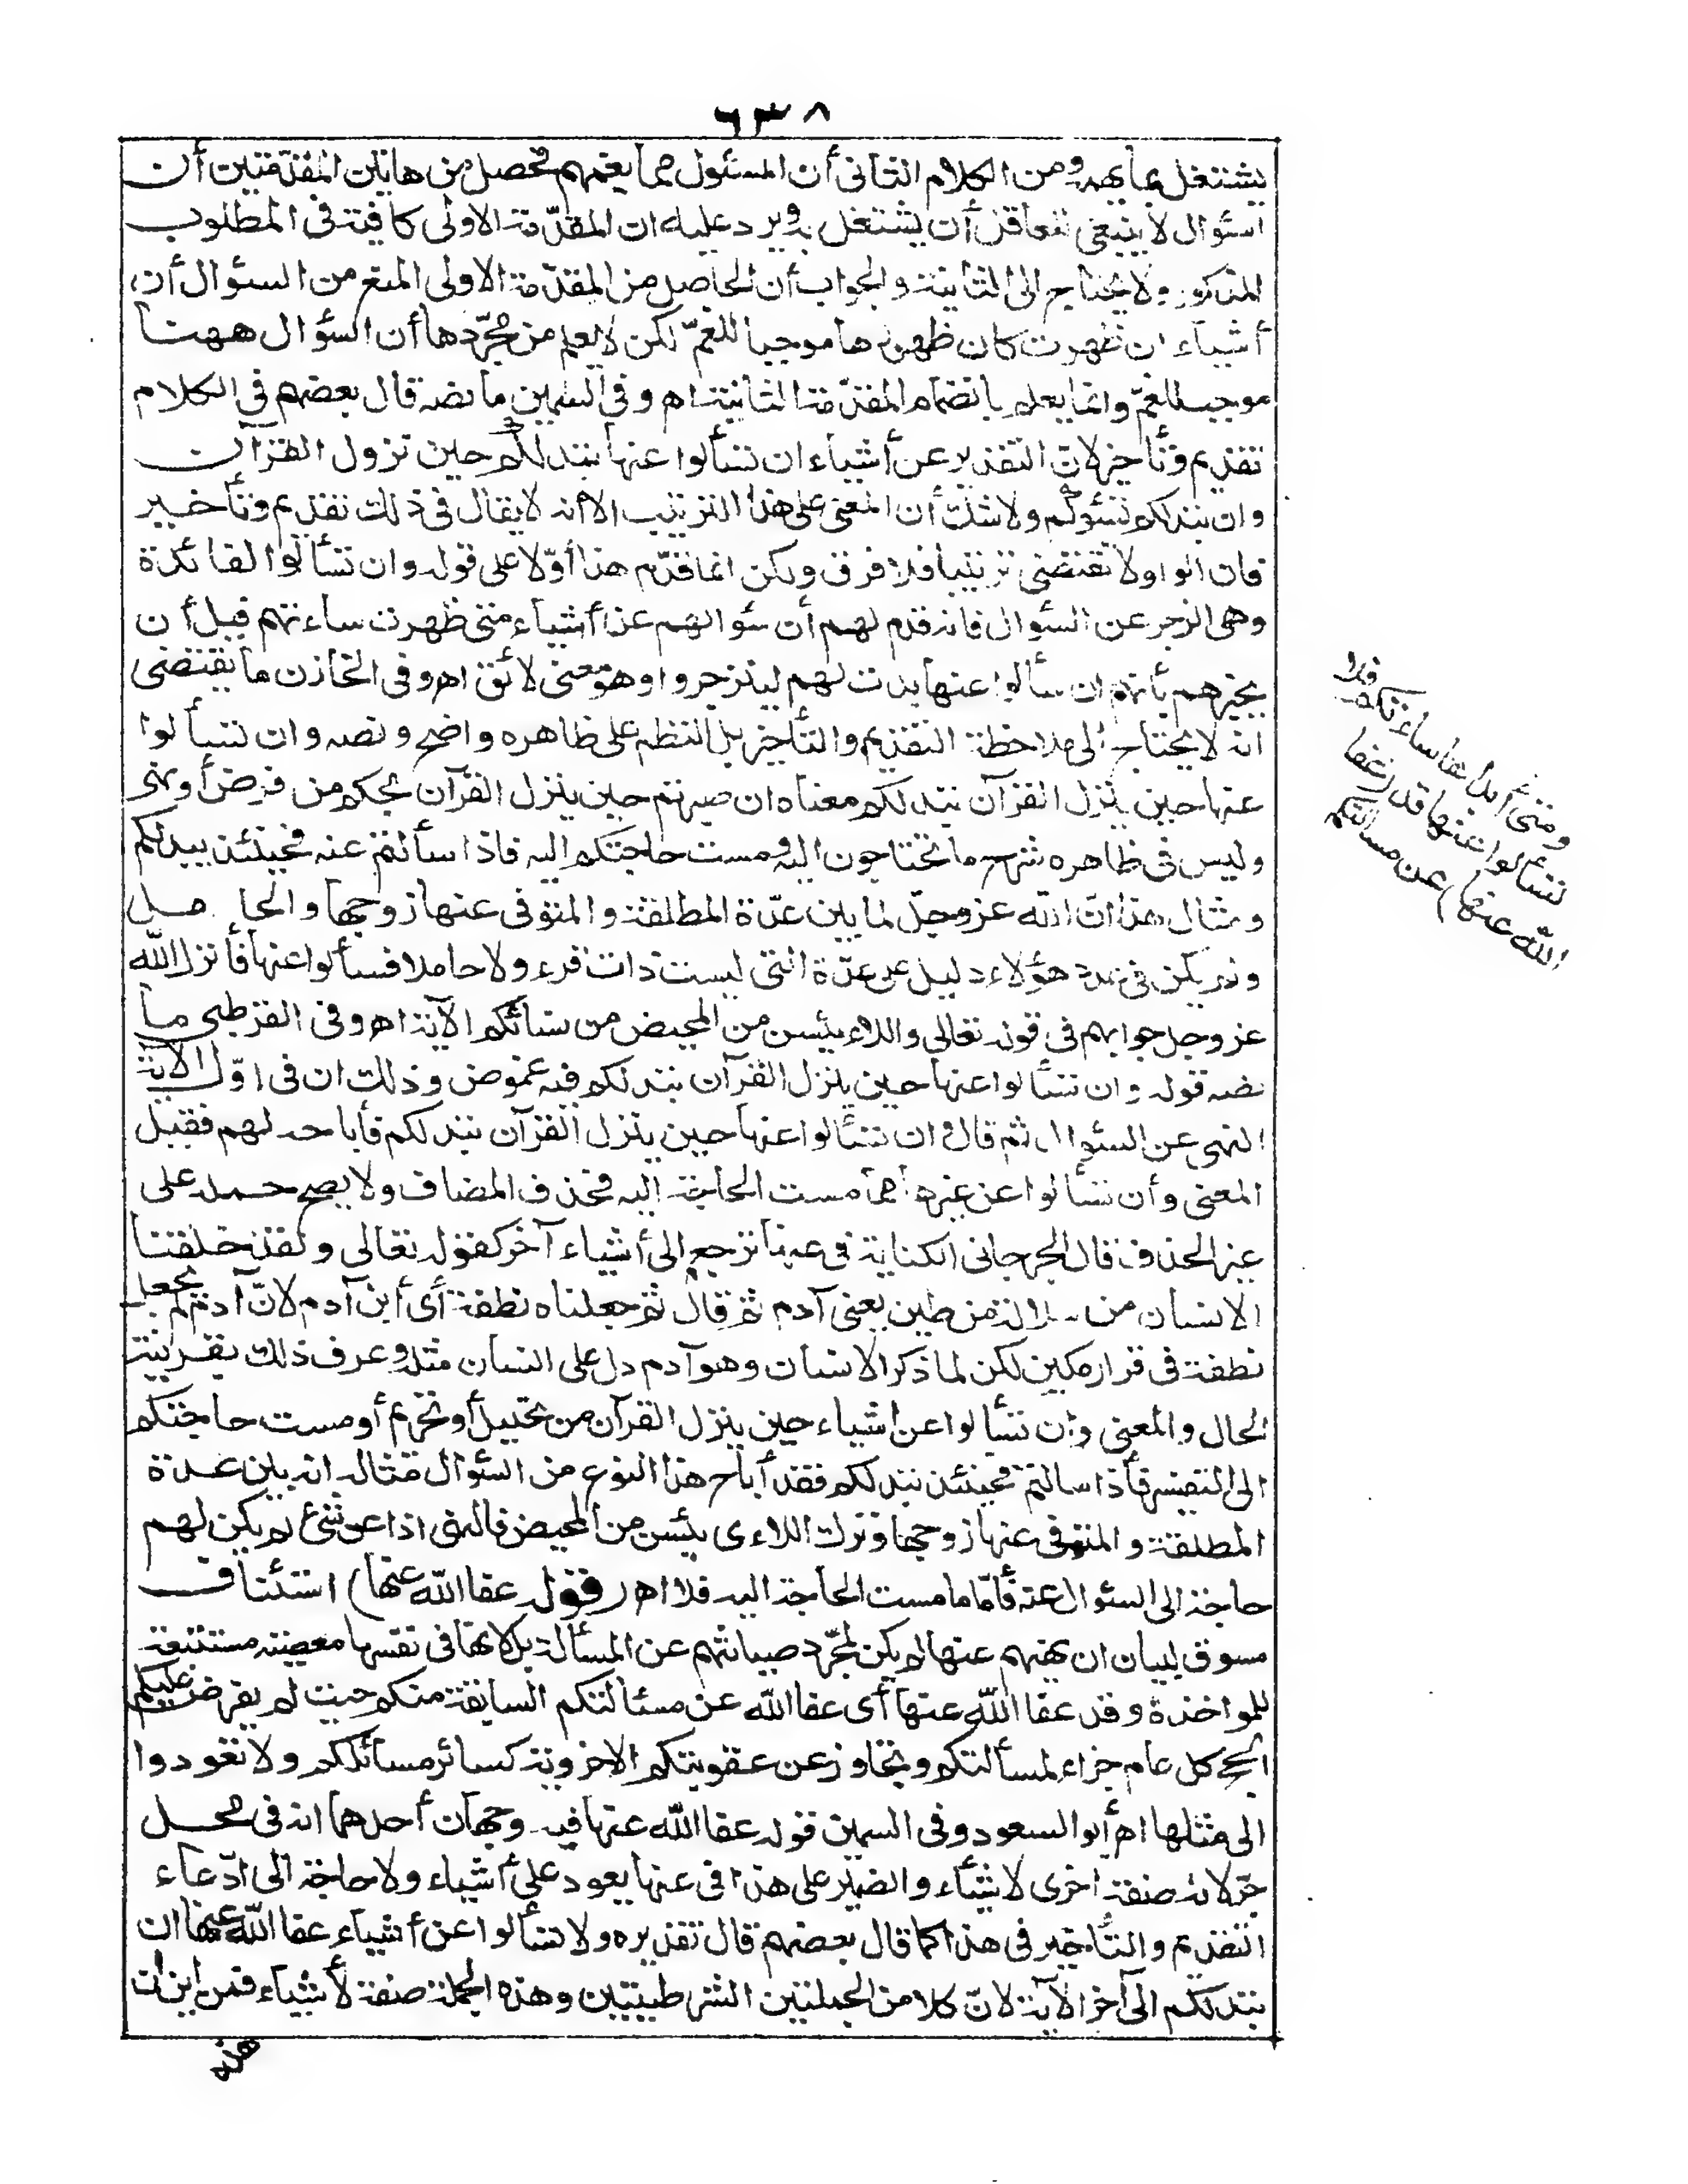 ٦٣٨
يشتغل بما يهمه ومن الكلام الثاني أن المسئول مما يغمهم فحصل من هاتين المقدّمتين أن
السئوال لا ينبغي للعاقل أن يشتغل به ويرد عليه ان المقدّمة الاولى كافية في المطلوب
المذكور ولا يحتاج الى الثانية والجواب أن الحاصل من المقدّمة الاولى المنع من السئوال أن
أشياء ان ظهرت كان ظهورها موجبا للغمّ لكن لا يعلم من مجرّدها أن السؤال ههنا
موجب للغمّ وانما يعلم بانضمام المقدّمة الثانية اه وفي السمين ما نصه قال بعضهم في الكلام
تقديم وتأخير لانّ التقدير عن أشياء ان تسألوا عنها تبد لكم حين نزول القرآن
وان تبد لكم تسؤكم ولا شك أن المعنى على هذا الترتيب الا أنه لا يقال في ذلك تقديم وتأخير
فان الواو لا تقتضي ترتيبا فلا فرق ولكن انما قدّم هذا أوّلا على قوله وان تسألوا لفائدة
وهي الزجر عن السئوال فانه قدم لهم أن سئوالهم عن أشياء متى ظهرت ساءتهم قبل أن
يخبرهم بأنهم ان سألوا عنها بدت لهم لينزجروا وهو معنى لائق اه وفي الخازن ما يقتضي
انه لا يحتاج الى ملاحظة التقديم والتأخير بل النظم على ظاهره واضح ونصه وان تسألوا
عنها حين ينزل القرآن تبد لكم معناه ان صبرتم حين ينزل القرآن بحكم من فرض أو نهي
وليس في ظاهره شرح ما تحتاجون اليه ومست حاجتكم اليه فاذا سألتم عنه فحينئذ يبد لكم
ومثال هذا انّ الله عز وجلّ لما بين عدّة المطلقة والمتوفى عنها زوجها والحامل
ولم يكن في عدد هؤلاء دليل على عدّة التي ليست ذات قرء ولا حاملا فسألوا عنها فأنزل الله
عز وجل جوابهم في قوله تعالى واللاء يئسن من المحيض من نسائكم الآية اه وفي القرطبي ما
نصه قوله وان تسألوا عنها حين ينزل القرآن تبد لكم فيه غموض وذلك ان في اوّل الآية
النهي عن السئوال ثم قال وان تسألوا عنها حين ينزل القرآن تبد لكم فأباحه لهم فقيل
المعنى وأن تسألوا عن غيرها مما مست الحاجة اليه فحذف المضاف ولا يصح حمله على
غير الحذف قال الجرجاني الكناية في عنها ترجع الى أشياء آخر كقوله تعالى ولقد خلقنا
الانسان من سلالة من طين يعني آدم ثم قال ثم جعلناه نطفة أى أبن آدم لانّ آدم لم يجعل
نطفة في قرار مكين لكن لما ذكر الانسان وهو آدم دل على انسان مثله وعرف ذلك بقرينة
الحال والمعنى وان تسألوا عن اشياء حين ينزل القرآن من تحليل أو تحريم أو مست حاجتكم
الى التفسير فأذا سالتم فحينئذ تبد لكم فقد أباح هذا النوع من السئوال مثاله انه بين عدة
المطلقة والمتوفى عنها زوجها وترك اللاءى يئسن من المحيض فالنهى اذا عن شئ لم يكن لهم
حاجة الى السئوال عنه فأمّا ما مست الحاجة اليه فلا اه (قوله عفا الله عنها) استئناف
مسوق لبيان ان نهيهم عنها لم يكن لمجرّد صيانتهم عن المسألة بل لانها في نفسها معصية مستتبعة
للمواخذة وقد عفا الله عنها أى عفا الله عن مسئالتكم السابقة منكم حيث لم يفرض عليكم
الحج كل عام جزاء لمسألتكم وتجاوز عن عقوبتكم الاخروية كسائر مسائلكم ولا تعودوا
الى مثلها اه أبو السعود وفي السمين قوله عفا الله عنها فيه وجهان أحدهما انه في محل
جرّ لانه صفة اخرى لاشياء والضمير على هذا في عنها يعود على أشياء ولا حاجة الى ادّعاء
التقديم والتأخير في هذا كما قال بعضهم قال تقديره ولا تسألوا عن أشياء عفا الله عنها ان
تبد لكم الى آخر الآية لانّ كلا من الجملتين الشرطيتين وهذه الجملة صفة لأشياء فمن اين ان
هذه
ومتى أبداها ساءتكم فلا
تسألوا عنها قد (عفا
الله عنها) عن مسألتكم